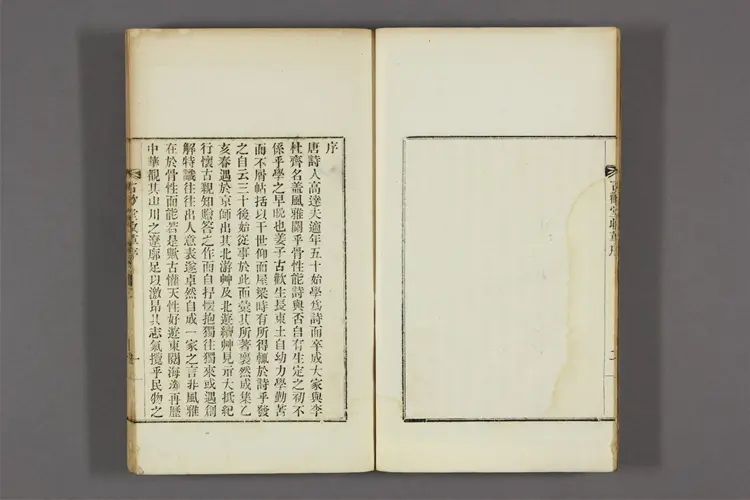 古懽堂收草序
二
序
唐詩人高達夫適年五十始學爲詩而卒成大家與李
杜齊名蓋風雅關乎骨性能詩與否自有生定之初不
係乎學之早晚也姜子古歡生長東土自幼力學勤苦
而不屑帖括以干世仰而屋梁時有所得輒於詩乎發
之自云三十後始從事於此而彙其所著裒然成集乙
亥春遇於京師出其北游艸及北遊續艸見示大抵紀
行懷古親知贈答之作而自抒懷抱獨往獨來或遇創
解特識往往出人意表遂卓然自成一家之言非風雅
在於骨性而能若是歟古懽天性好遊東閱海濤再歷
中華觀其山川之遼廓足以激昂其志氣攬乎民物之
一